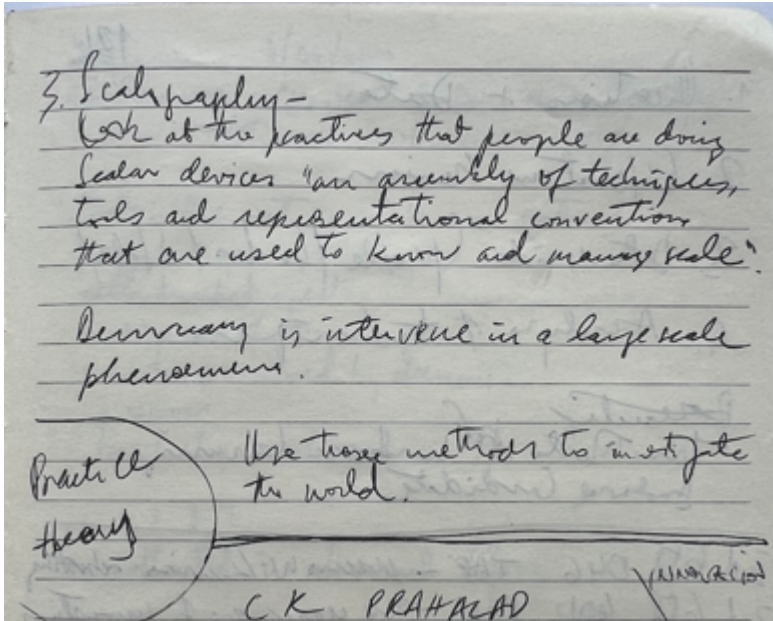 3. Scalography –
Look at the practices that people are doing
Scalar devices "an assembly of techniques,
tools and representational conventions
that are used to know and manage scale".
Democracy is intervene in a large scale
phenomena.
Use those methods to investigate
the world.
Practice
theory
INNOVACION
CK PRAHALAD